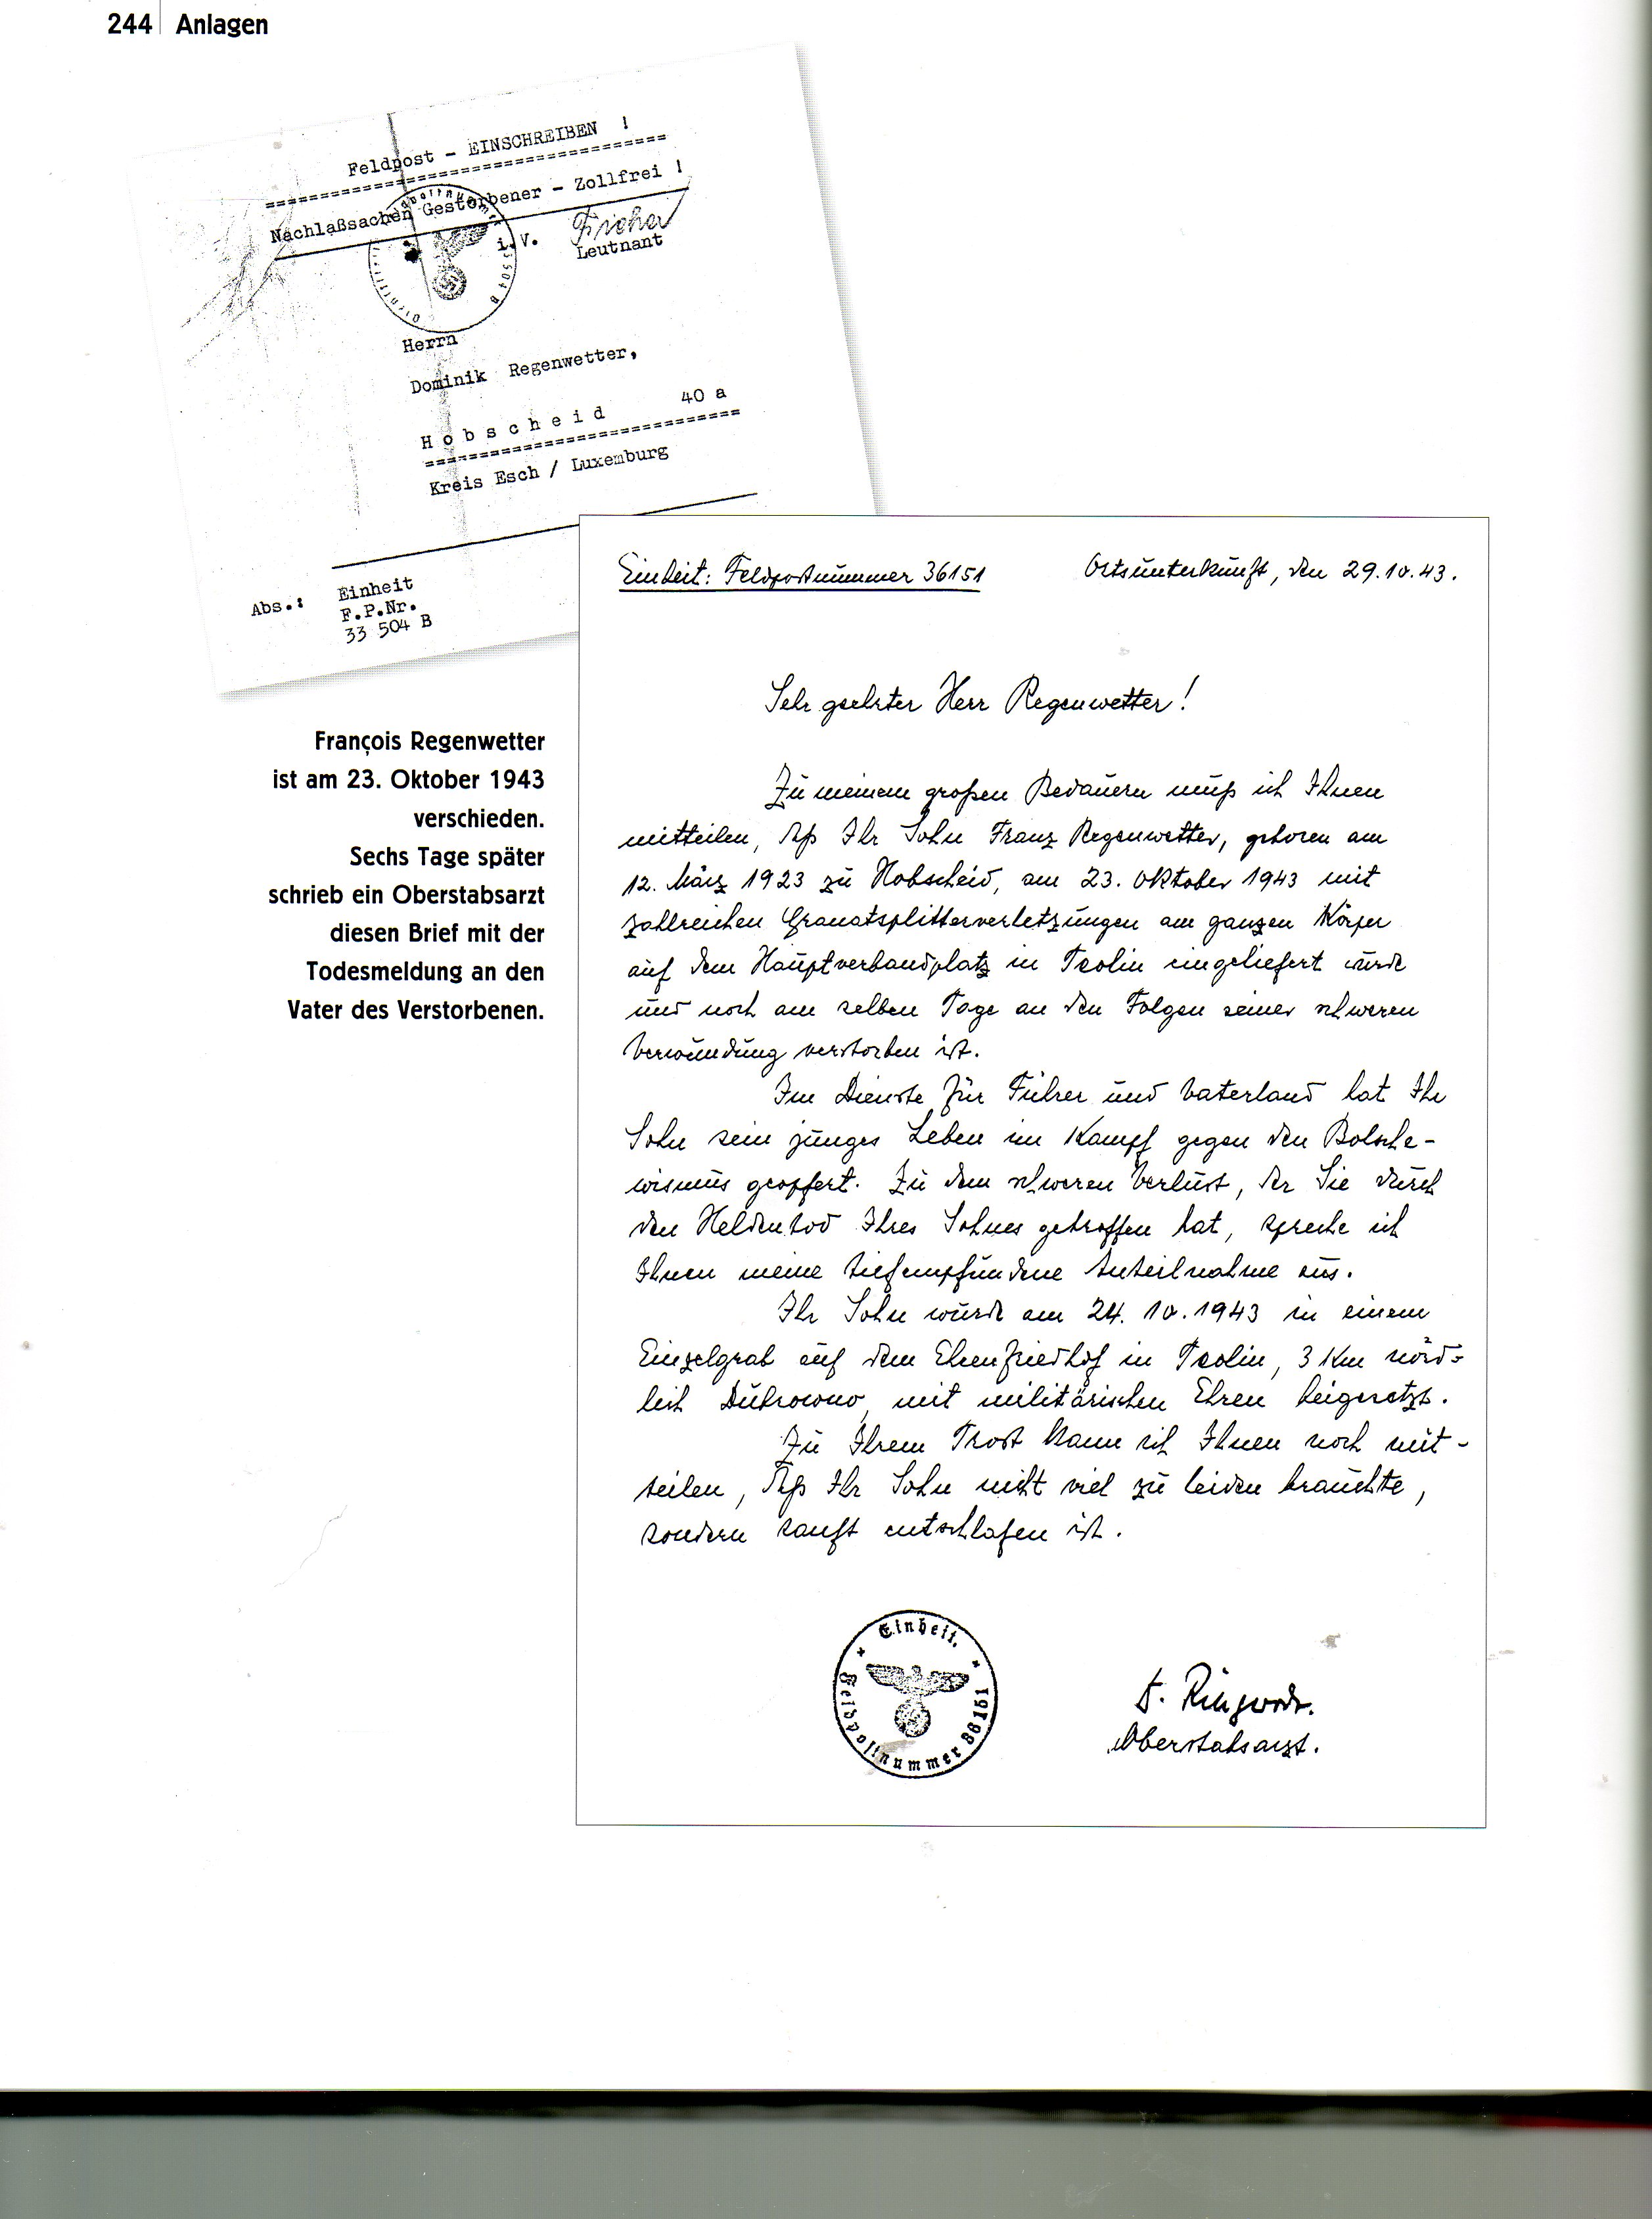 244 | Anlagen
Feldpost - EINSCHREIBEN !
Nachlaßsachen Gestorbener - Zollfrei !
i.V. Fischer
Leutnant
Herrn
Dominik Regenwetter,
Hobscheid 40 a
Kreis Esch / Luxemburg
Abs.: Einheit
F.P.Nr.
33 504 B
François Regenwetter
ist am 23. Oktober 1943
verschieden.
Sechs Tage später
schrieb ein Oberstabsarzt
diesen Brief mit der
Todesmeldung an den
Vater des Verstorbenen.
Einheit: Feldpostnummer 36151
Ortsunterkunft, den 29.10.43.
Sehr geehrter Herr Regenwetter!
Zu meinem großen Bedauern muß ich Ihnen
mitteilen, daß Ihr Sohn Franz Regenwetter, geboren am
12. März 1923 zu Hobscheid, am 23. Oktober 1943 mit
zahlreichen Granatsplitterverletzungen am ganzen Körper
auf dem Hauptverbandplatz in Tsolin eingeliefert wurde
und noch am selben Tage an den Folgen seiner schweren
Verwundung verstorben ist.
Im Dienste für Führer und Vaterland hat Ihr
Sohn sein junges Leben im Kampf gegen den Bolsche-
wismus geopfert. Zu dem schweren Verlust, der Sie durch
den Heldentod Ihres Sohnes getroffen hat, spreche ich
Ihnen meine tiefempfundene Anteilnahme aus.
Ihr Sohn wurde am 24.10.1943 in einem
Einzelgrab auf dem Ehrenfriedhof in Tsolin, 3 Km nörd-
lich Dubrowno, mit militärischen Ehren beigesetzt.
Zu Ihrem Trost kann ich Ihnen noch mit-
teilen, daß Ihr Sohn nicht viel zu leiden brauchte,
sondern sanft entschlafen ist.
Einheit.
Feldpostnummer 36151
Oberstabsarzt.